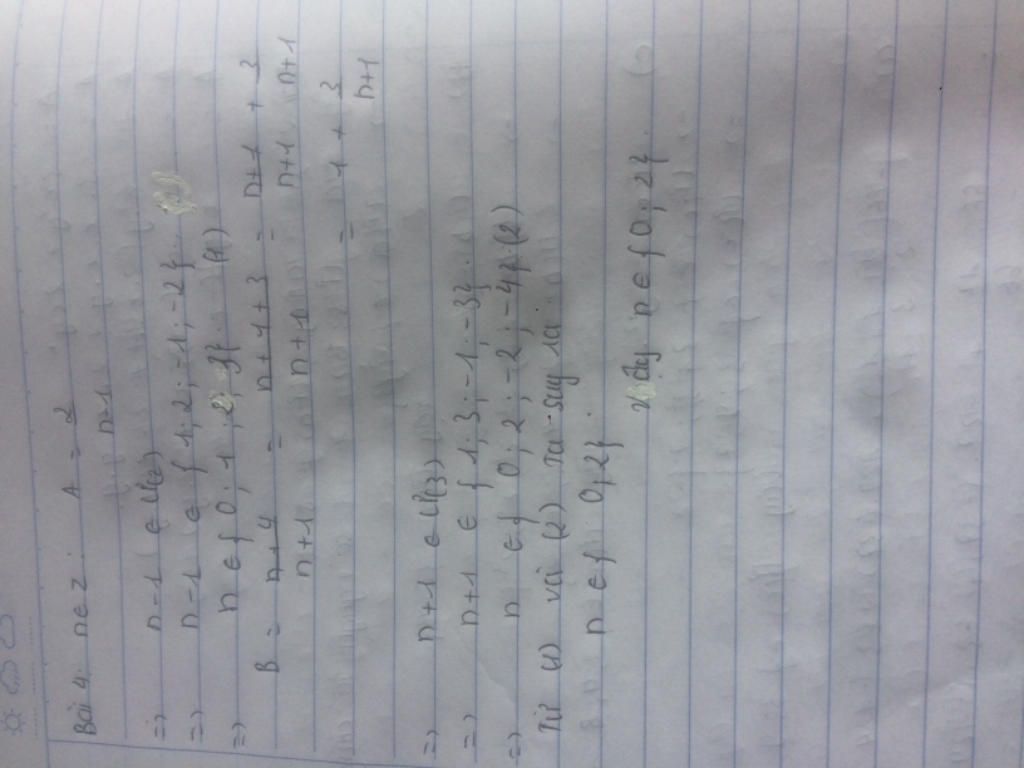 Bài 4. n∈Z. A = 2/n-1
=> n-1 ∈ Ư(2)
=> n-1 ∈ { 1; 2; -1; -2}
=> n ∈ { 0; 1; 2; 3}. (1)
B = n+4/n+1 = n+1+3/n+1 = n+1/n+1 + 3/n+1
= 1 + 3/n+1
=> n+1 ∈ Ư(3)
=> n+1 ∈ { 1; 3; -1; -3}.
=> n ∈ { 0; 2; -2; -4} (2)
Từ (1) với (2) ta suy ra
n ∈ { 0, 2}
Vậy n ∈ {0; 2}.